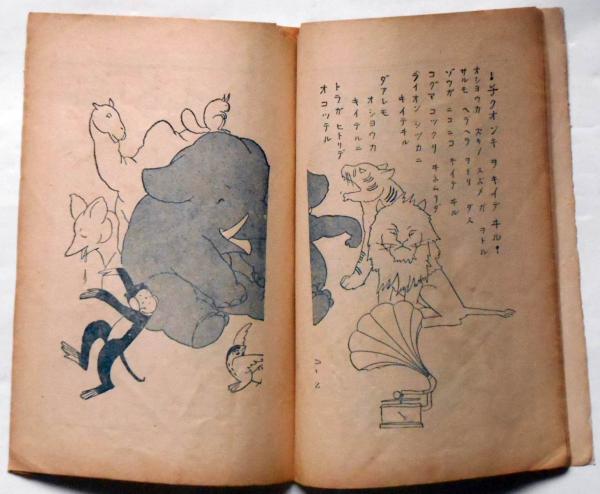 ・チクオンキ ヲ キイテ ヰル・
オシヨウカ ズキノ スズメ ガ ヲドル
サルモ ヘラヘラ ヲドリ ダス
ゾウガ ニコニコ キイテ ヰル
コグマ コツクリ ヰネムリダ
ライオン シヅカニ
キイテヰル
ダアレモ
オシヨウカ
キイテルニ
トラガ ヒトリデ
オコツテル